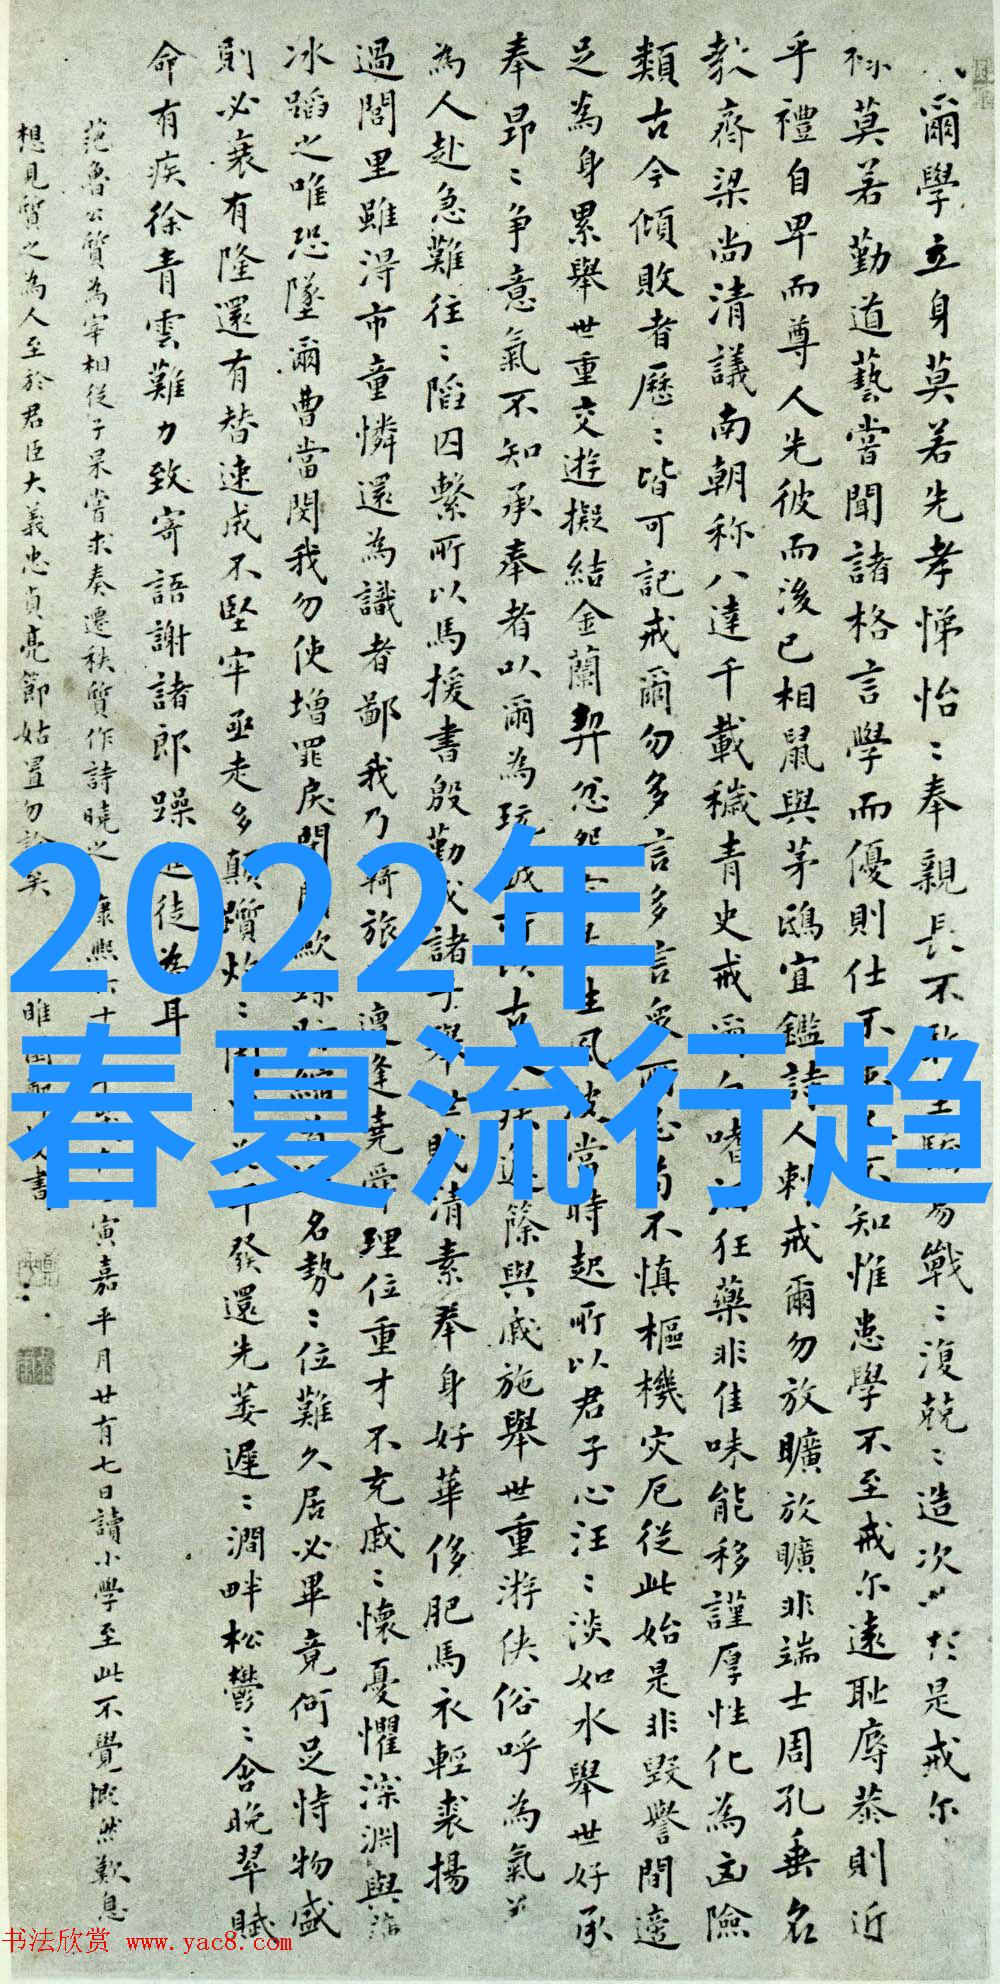 爾學立身莫若先孝悌怡〻奉親長不敢生驕易戰〻復兢〻造次必於是戒尔
莫若勤道藝嘗聞諸格言學而優則仕不患人不知惟患學不至戒尔遠恥辱恭則近
乎禮自卑而尊人先彼而後己相鼠與茅鴟宜鑑詩人刺戒爾勿放曠放曠非端士周孔垂名
教齊梁尚清議南朝称八達千載穢青史戒爾勿嗜酒狂藥非佳味能移謹厚性化為凶險
類古今傾敗者歷〻皆可記戒爾勿多言多言眾所忌苟不慎樞機灾厄從此始是非毀譽間適
足為身累舉世重交遊擬結金蘭契忿怨生風波當時起所以君子心汪〻淡如水舉世好承
奉昂〻争意氣不知承奉者以爾為玩戲所以古人疾籧篨與戚施舉世重游侠俗呼為氣義
為人赴急難往〻陷囚繫所以馬援書殷勤戒諸子舉世賤清素奉身好華侈肥馬衣輕裘揚
過閭里雖得市童憐還為識者鄙我乃羈旅遭逢堯舜理位重才不充戚〻懷憂懼深淵與薄
冰蹈之唯恐墜爾曹當閔我勿使增罪戾閉門斂名勢〻位難久居必畢竟何足恃物盛
則必衰有隆還有替速成不堅牢亟走多顛躓灼〻園發還先萎遲〻澗畔松鬱〻含晚翠賦
命有疾徐青雲難力致寄語謝諸郎躁進徒為耳
范魯公質為宰相從子杲嘗求奏遷秩質作詩曉之 康熙六十寅嘉平月廿有七日讀小學至此不覺慨然歎息
想見質之為人至於君臣大義忠貞亮節姑置勿論矣 睢園書
2022年
春夏流行趋
书法欣赏 www.yac8.com